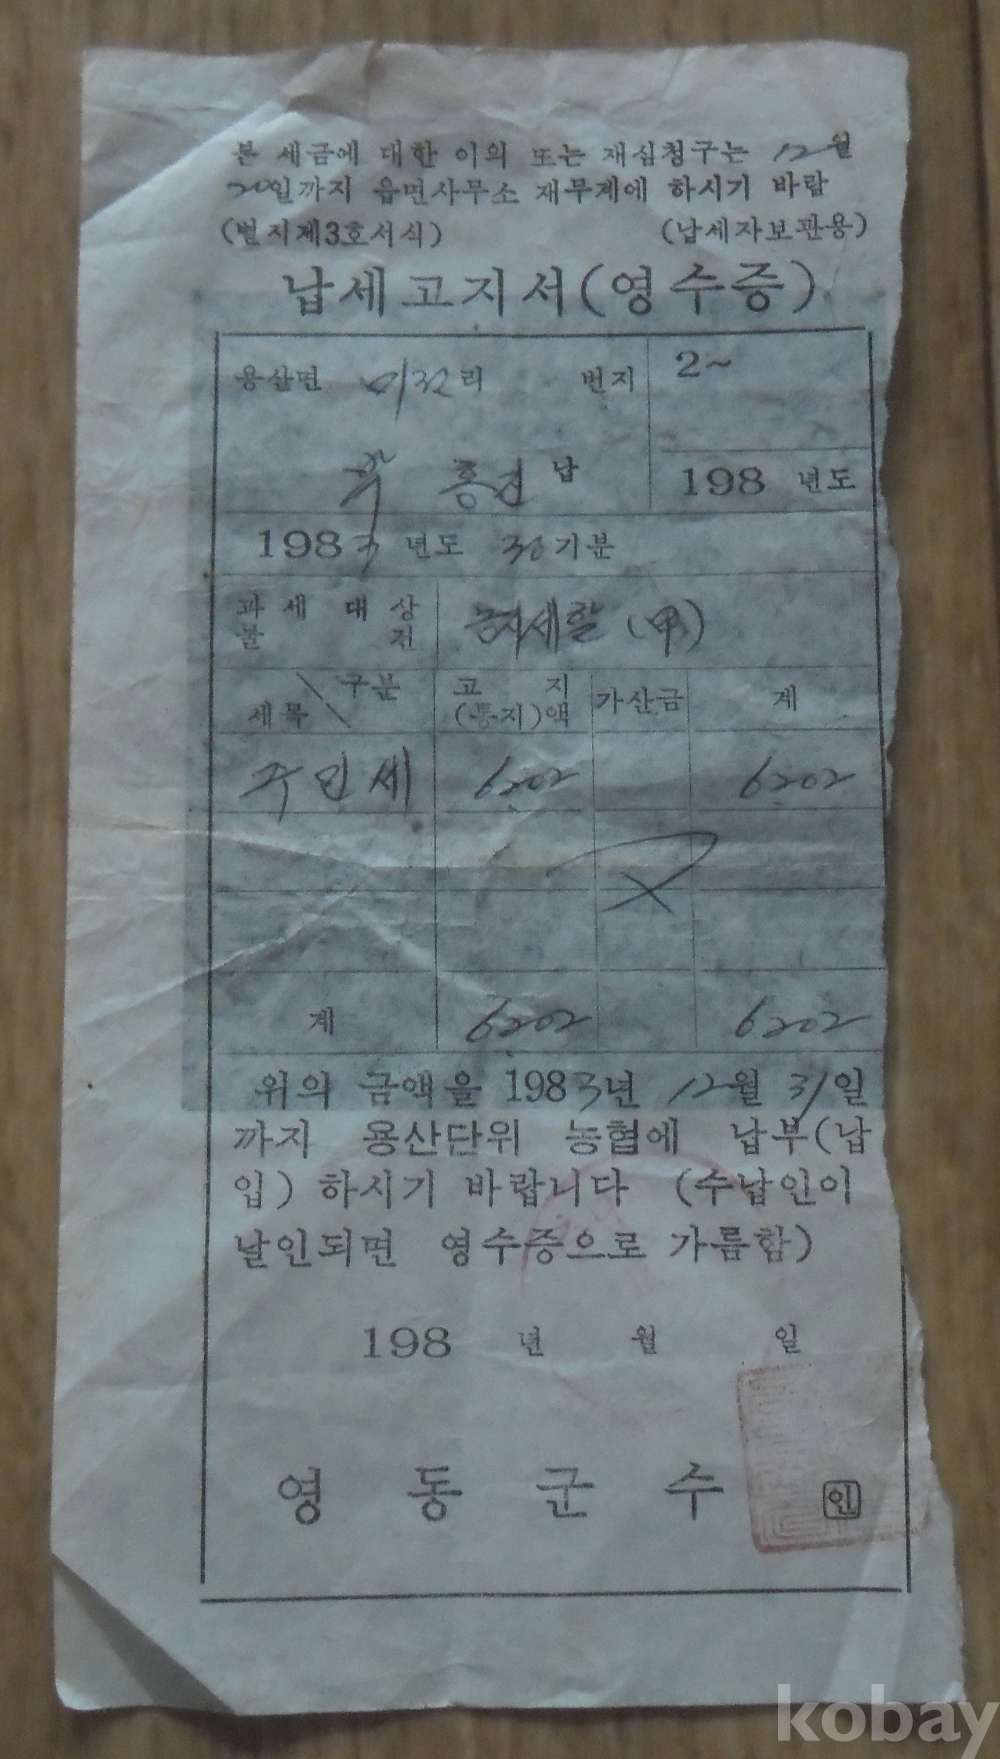 본 세금에 대한 이의 또는 재심청구는 12월
20일까지 읍면사무소 재무계에 하시기 바람
(별지제3호서식) (납세자보관용)
납세고지서(영수증)
용산면 리 번지 2~
홍 납 198 년도
1983년도 기분
과세 대상
물 건
(甲)
구분
세목
고 지
(통지)액
가산금
계
주민세 6202 6202
계 6202 6202
위의 금액을 1983년 12월 31일
까지 용산단위 농협에 납부(납
입) 하시기 바랍니다 (수납인이
날인되면 영수증으로 가름함)
198 년 월 일
영 동 군 수 인
kobay